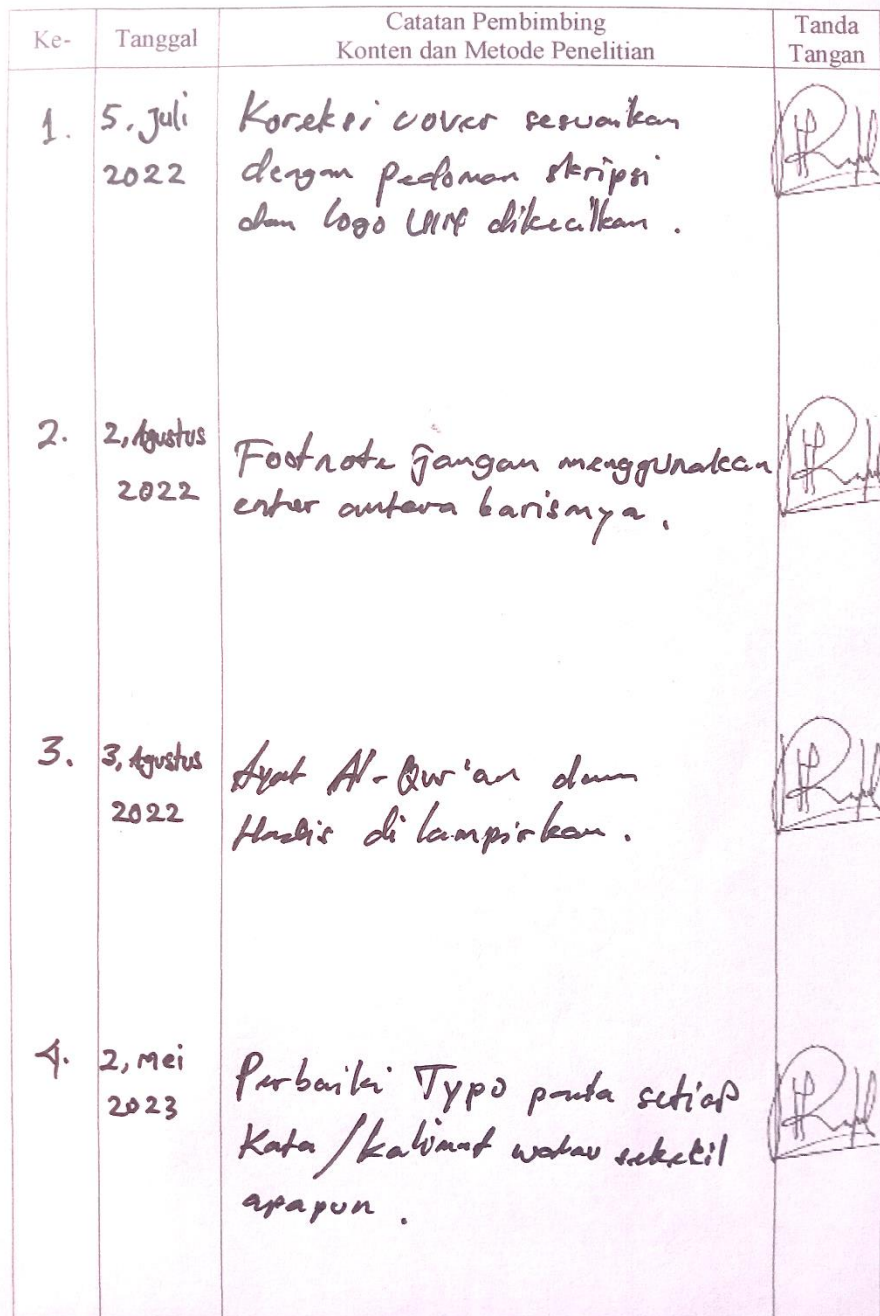 Ke-
Tanggal
Catatan Pembimbing
Konten dan Metode Penelitian
Tanda
Tangan
1.
5. Juli
2022
Koreksi cover sesuaikan
dengan pedoman skripsi
dan logo UIN dikecilkan.
2.
2, Agustus
2022
Footnote jangan menggunakan
enter antara barisnya.
3.
3, Agustus
2022
Ayat Al-Qur'an dan
Hadis di lampirkan.
4.
2, Mei
2023
Perbaiki Typo pada setiap
Kata/kalimat walau sekecil
apapun.